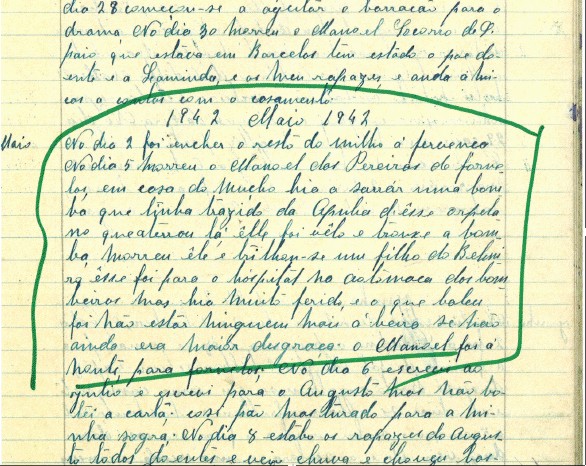 dia 28 começou-se a ageitar o barracão para o
drama. No dia 30 morreu o Manoel Socorro de S.
paio que estava em Barcelos tem estado o pae do-
ente e a Segminda, e os meu rapazes e anda a Mi-
cas a contos com o casamento
1942 Maio 1942
Maio No dia 2 foi encher o resto do milho á
No dia 5 morreu o Manoel dos Pereiras de forne-
los, em casa do Mucho hia a sarrar uma bom
ba que tinha trazido da Apulia desse
no que aterrou lá elle foi vêlo e trouxe a bom
ba, morreu êle e um filho do Belmi
ro êsse foi para o hospital na automaca dos bom
beiros mas hia muito ferido, e o que valeu
foi não estar ninguem mais á beira se não
ainda era maior disgraça. o Manoel foi á
noute para fornelos. No dia 6 escreveu ao
e escreví para o Augusto mas não bo-
tei a carta: cosí pão misturado para a mi-
nha sogra. No dia 8 estabo os rapazes do Augus
to todos doentes e vem chuva e